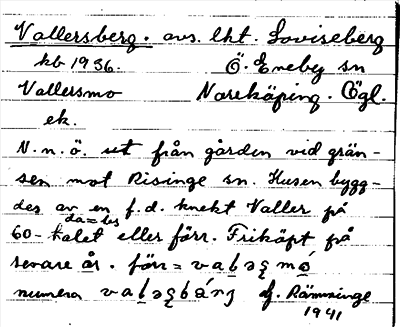 Vallersberg. avs. lht. Loviseberg
kb 1936. Ö. Eneby sn
Vallersmo Norrköping. Ögl.
ek.
N.n.ö. ut från gården vid grän-
sen mot Risinge sn. Husen bygg-
des av en f.d. knekt Valler på
60-talet eller förr. Friköpt på
senare år. förr =
numera Rämninge
1941